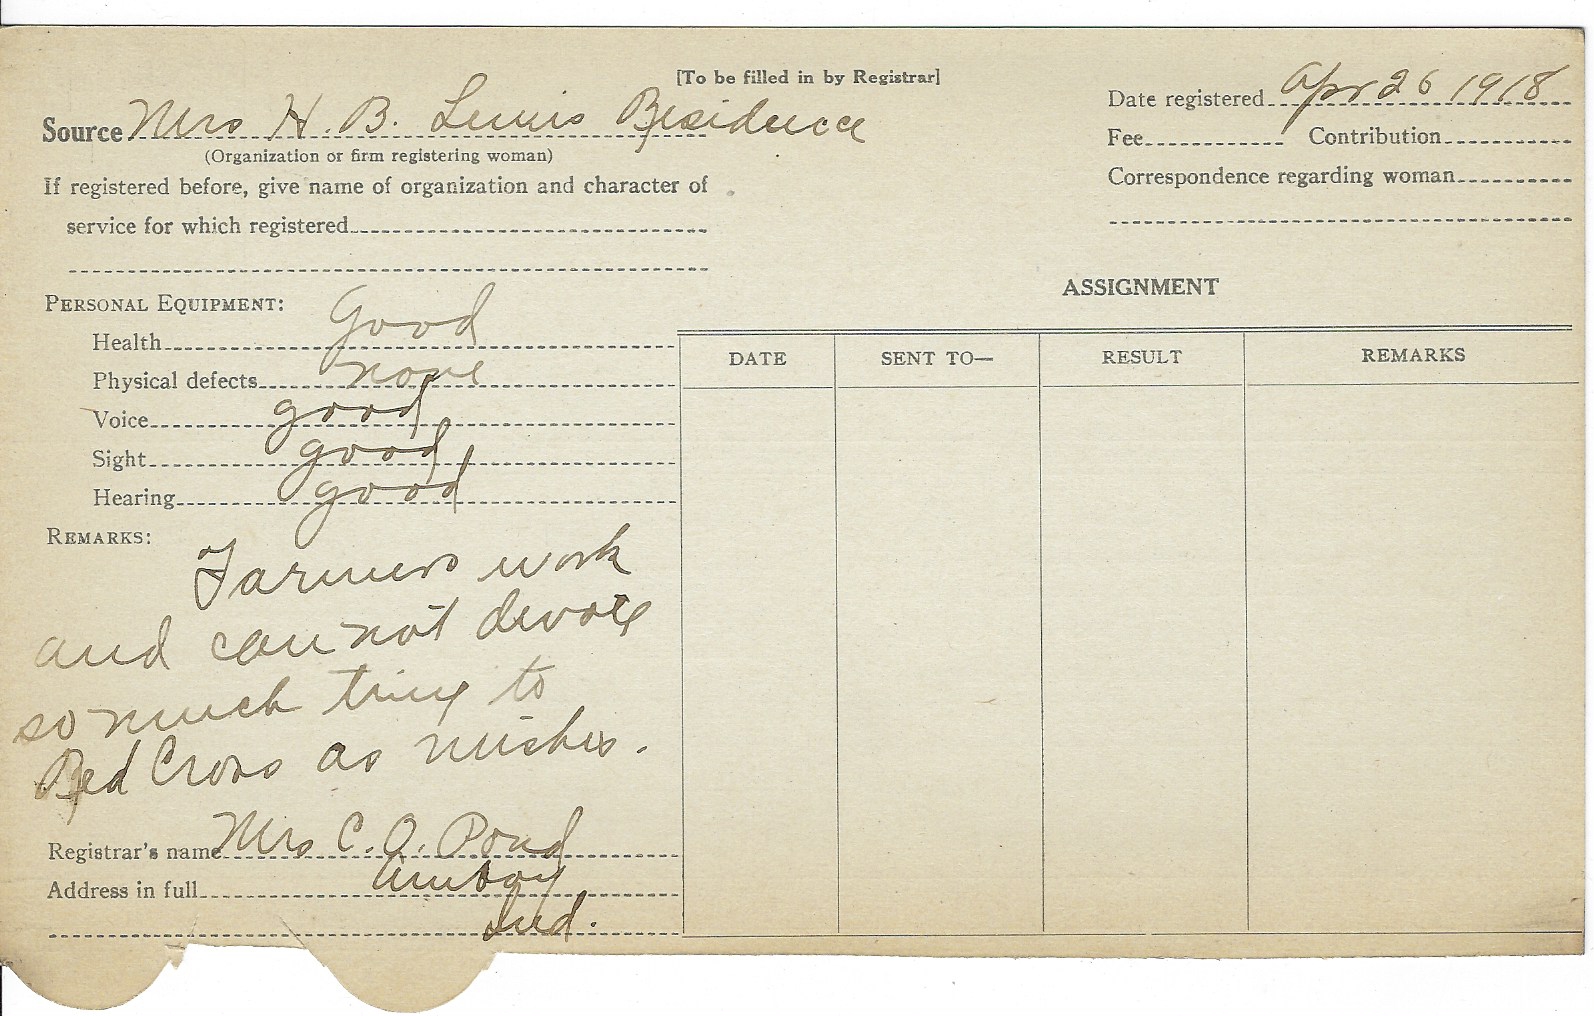 [To be filled in by Registrar]
Source Mrs H. B. Lewis Residence
(Organization or firm registering woman)
If registered before, give name of organization and character of
service for which registered
Date registered Apr 26 1918
Fee Contribution
Correspondence regarding woman
PERSONAL EQUIPMENT:
Health Good
Physical defects none
Voice good
Sight good
Hearing good
REMARKS:
Farmers work
and can not devote
so much time to
Red Cross as wishes.
Registrar's name Mrs C. O. Pond
Address in full Amboy
Ind.
ASSIGNMENT
DATE SENT TO— RESULT REMARKS